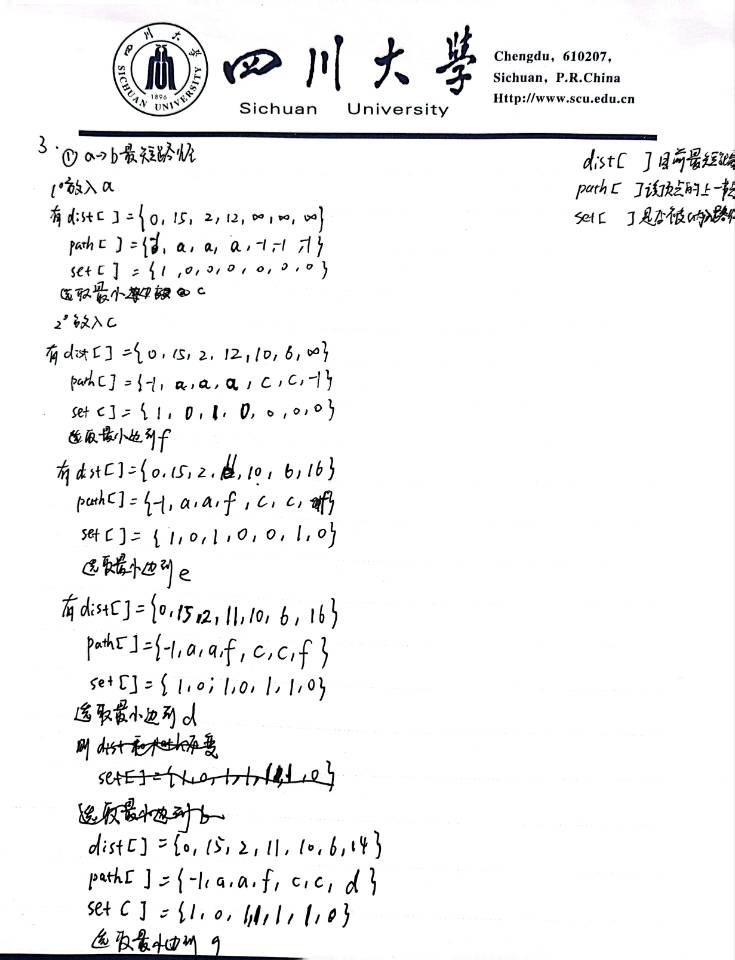 四川大學
Sichuan University
四川大学
SICHUAN UNIVERSITY
1896
Chengdu, 610207,
Sichuan, P.R.China
Http://www.scu.edu.cn
3. ① a→b最短路径
dist[ ]目前最短
path[ ]该顶点的上一
set[ ]是否被
1°放入a
有dist[ ]={0, 15, 2, 12, ∞, ∞, ∞}
path[ ]={-1, a, a, a, -1, -1, -1}
set[ ]={1, 0, 0, 0, 0, 0, 0}
选取最小 c
2°放入c
有dist[ ]={0, 15, 2, 12, 10, 6, ∞}
path[ ]={-1, a, a, a, c, c, -1}
set[ ]={1, 0, 1, 0, 0, 0, 0}
选取最小边到f
有dist[ ]={0, 15, 2, 11, 10, 6, 16}
path[ ]={-1, a, a, f, c, c, f}
set[ ]={1, 0, 1, 0, 0, 1, 0}
选取最小边到e
有dist[ ]={0, 15, 2, 11, 10, 6, 16}
path[ ]={-1, a, a, f, c, c, f}
set[ ]={1, 0, 1, 0, 1, 1, 0}
选取最小边到d
则dist和path不变
set[ ]={1, 0, 1, 1, 1, 1, 0}
选取最小边到b
dist[ ]={0, 15, 2, 11, 10, 6, 14}
path[ ]={-1, a, a, f, c, c, d}
set[ ]={1, 0, 1, 1, 1, 1, 0}
选取最小边到g